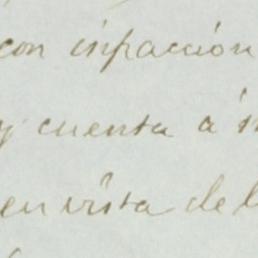 con infracción
y cuenta á
en vista de